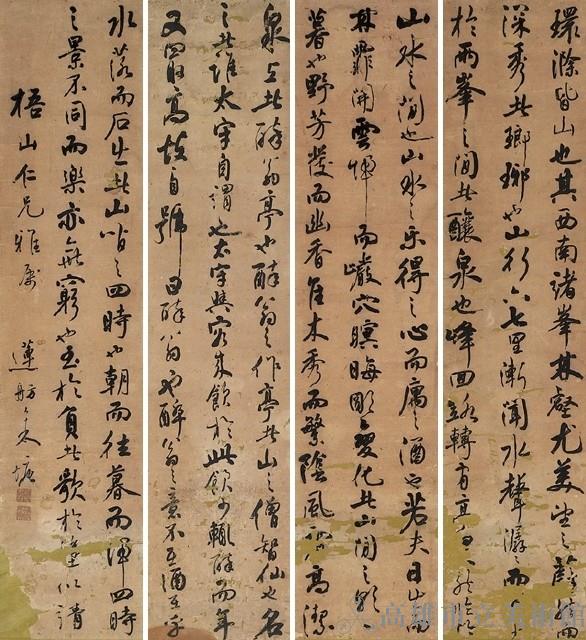 環滁皆山也其西南諸峯林壑尤美望之蔚然而
深秀者瑯琊也山行六七里漸聞水聲潺潺而
於兩峯之間者釀泉也峰回路轉有亭翼然臨於
泉上者醉翁亭也醉翁之作亭者山之僧智仙也名
之者誰太守自謂也太守與客來飲於此飲少輒醉而年
又最高故自號曰醉翁也醉翁之意不在酒在乎
山水之間也山水之樂得之心而寓之酒也若夫日出而
林霏開雲歸而巖穴暝晦明變化者山間之朝
暮也野芳發而幽香佳木秀而繁陰風霜高潔
水落而石出者山間之四時也朝而往暮而歸四時
之景不同而樂亦無窮也至於負者歌於塗
梧山仁兄雅屬 蓮舫塘
高雄市立美術館